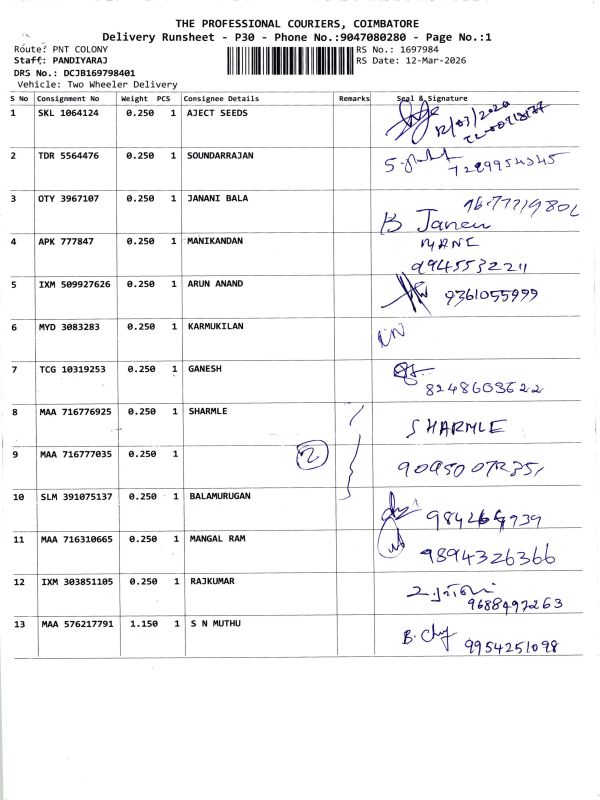 THE PROFESSIONAL COURIERS, COIMBATORE
Delivery Runsheet - P30 - Phone No.:9047080280 - Page No.:1
Route: PNT COLONY RS No.: 1697984
Staff: PANDIYARAJ RS Date: 12-Mar-2026
DRS No.: DCJB169798401
Vehicle: Two Wheeler Delivery
S No Consignment No Weight PCS Consignee Details Remarks Seal & Signature
1 SKL 1064124 0.250 1 AJECT SEEDS
12/03/2020
2 TDR 5564476 0.250 1 SOUNDARRAJAN
7299954345
3 OTY 3967107 0.250 1 JANANI BALA
B Janani
4 APK 777847 0.250 1 MANIKANDAN MANI
9945532211
5 IXM 509927626 0.250 1 ARUN ANAND 9361055999
6 MYD 3083283 0.250 1 KARMUKILAN
7 TCG 10319253 0.250 1 GANESH
8248603622
8 MAA 716776925 0.250 1 SHARMLE SHARMLE
9 MAA 716777035 0.250 1 2
10 SLM 391075137 0.250 1 BALAMURUGAN
11 MAA 716310665 0.250 1 MANGAL RAM 9894326366
12 IXM 303851105 0.250 1 RAJKUMAR
9688497263
13 MAA 576217791 1.150 1 S N MUTHU
9954251098